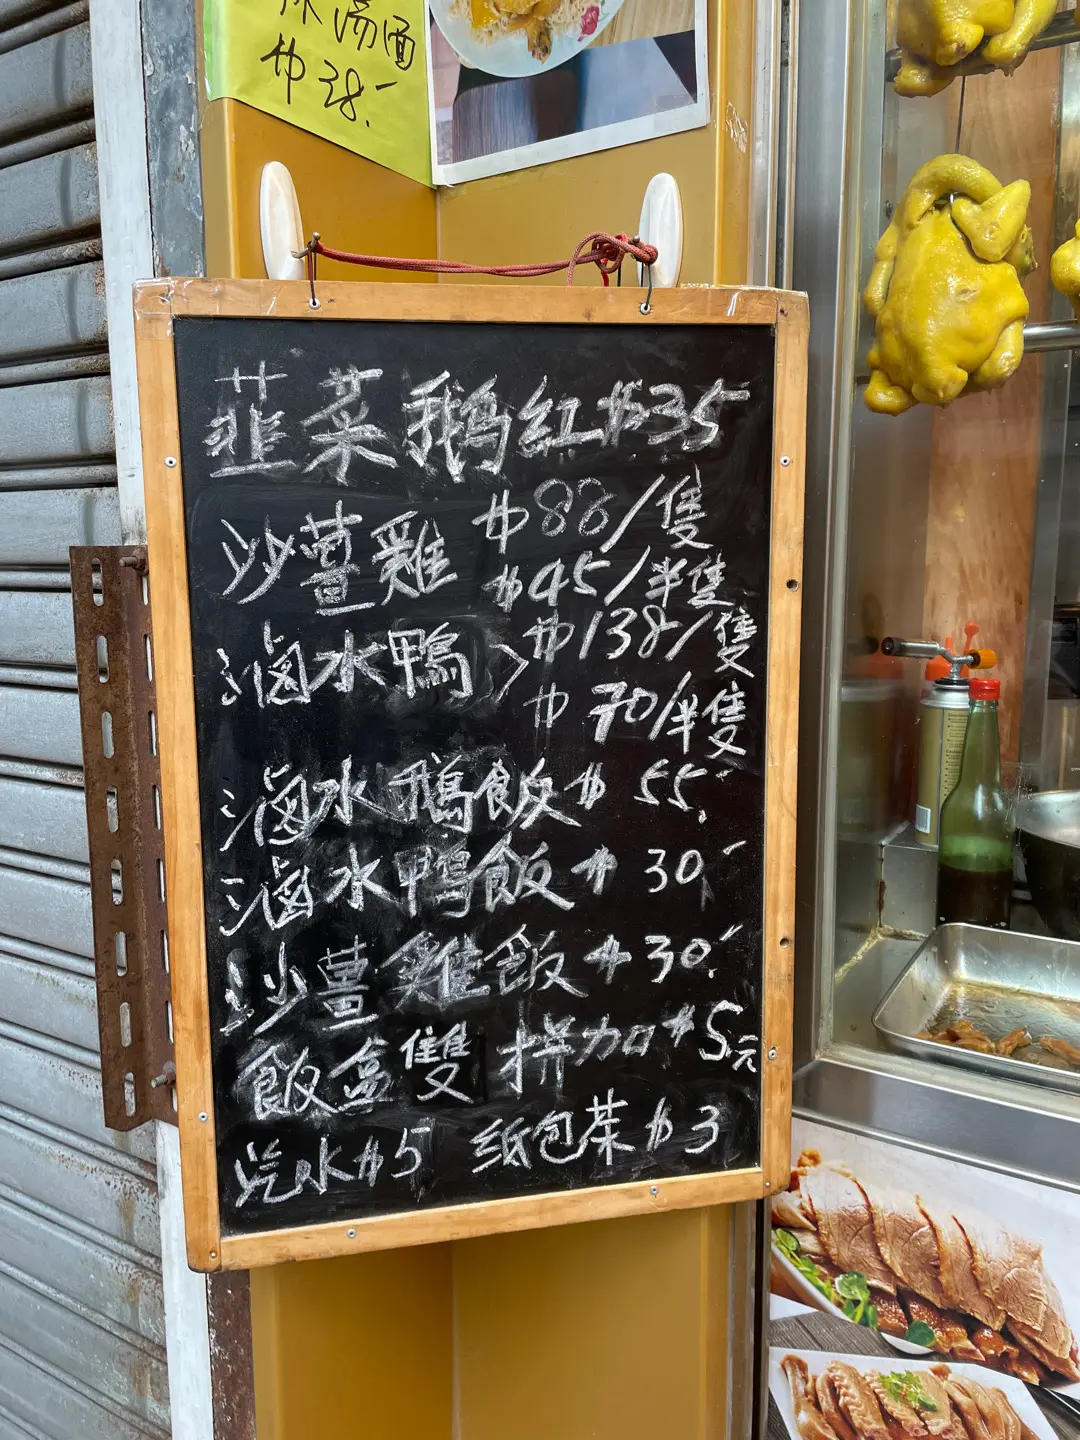 湯面
$38.-
韮菜鹅紅$35
沙薑雞 $88/隻
$45/半隻
滷水鴨> $138/隻
$70/半隻
滷水鵝飯$ 55.-
滷水鴨飯$ 30.-
沙薑雞飯$30.-
飯盒雙拼加$5元
汽水$5 纸包茶$3